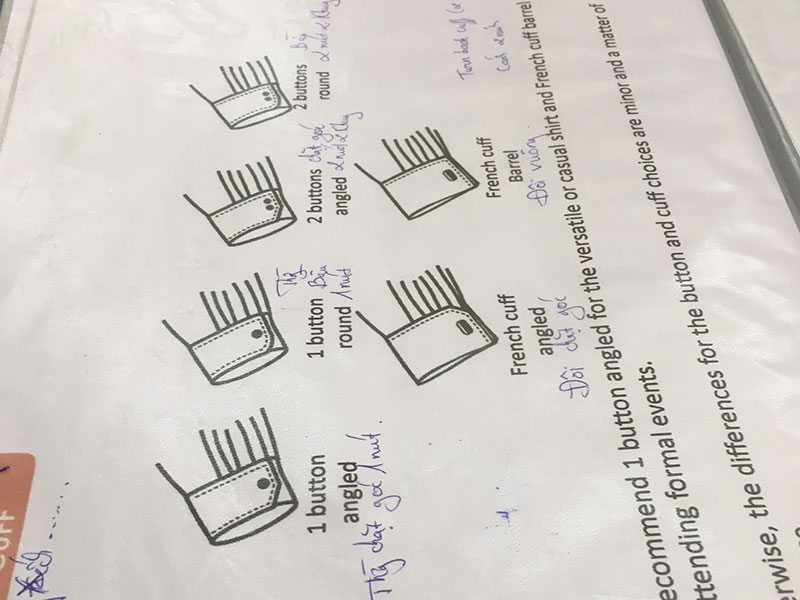 CUFF
1 button
angled
Thẳ chặt góc 1 nút.
1 button
round
Bậu
1 nút
2 buttons
angled
chặt góc
2 nút
2 buttons
round
Bậu
2 nút
French cuff
angled
Đôi chặt góc
French cuff
Barrel
Đôi vuông.
Turn back cuff
ecommend 1 button angled for the versatile or casual shirt and French cuff barrel
ttending formal events.
erwise, the differences for the button and cuff choices are minor and a matter of